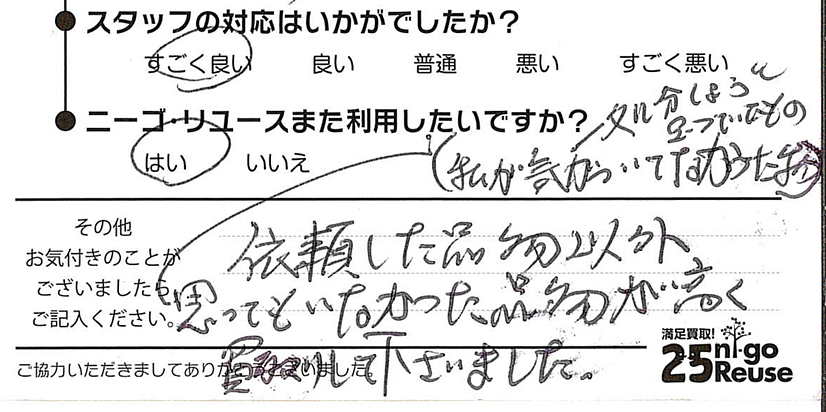 スタッフの対応はいかがでしたか？
すごく良い 良い 普通 悪い すごく悪い
ニーゴ・リユースまた利用したいですか？
はい いいえ
処分しよう
思っていたもの
(私が気がついてなかった物)
その他
お気付きのことが
ございましたら
ご記入ください。
依頼した品物以外
思ってもいなかった、品物が高く
買取りして下さいました。
ご協力いただきましてありがとうございました。
満足買取!
25 ni-go
Reuse